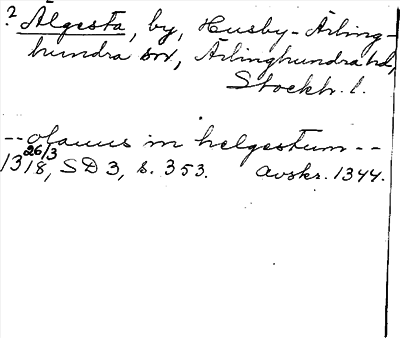 ? Älgesta, by, Husby-Ärling-
hundra sn, Ärlinghundra hd,
Stockh. l.
-- olauus in helgestum --
26/3
1318, SD 3, s. 353. Avskr. 1344.